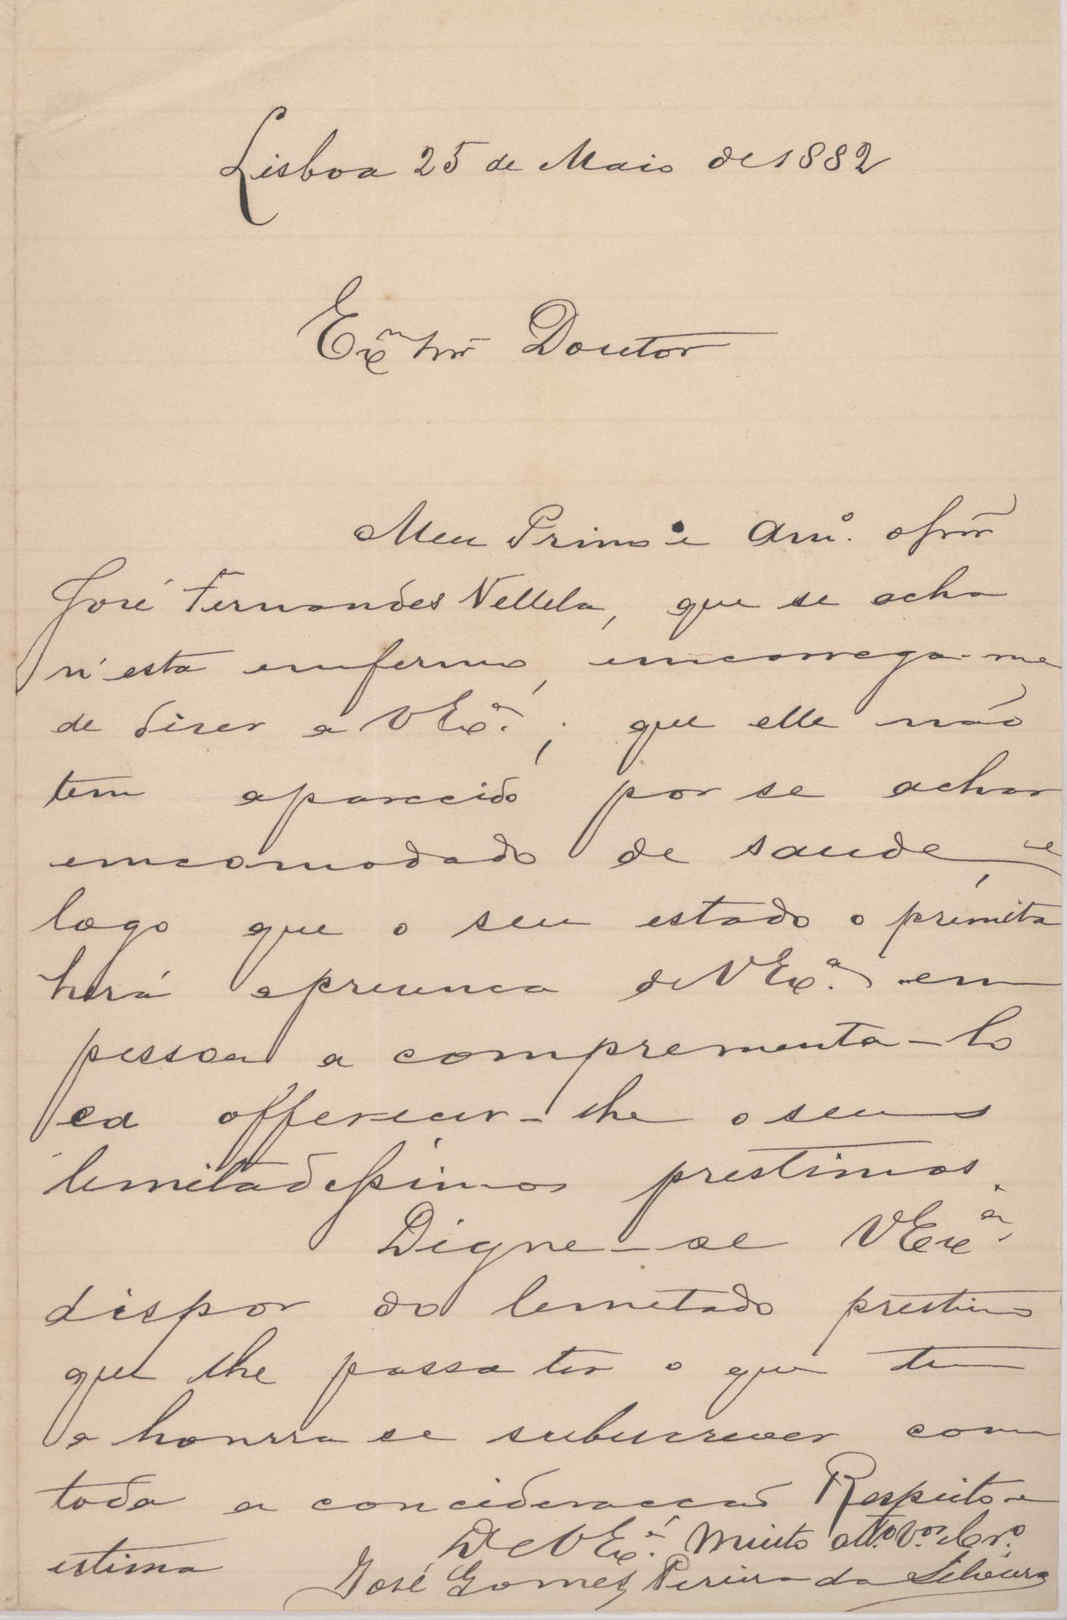 Lisboa 25 de Maio de 1882
Exmo Snr Doutor
Meu Primo e Amo. o Snr
José Fernandes Vellela, que se acha
n'esta emfermo, emcarrega-me
de diser a V Exa. ; que elle não
tem aparecido por se achar
emcomodado de saude, e
logo que o seu estado o prímita
hirá a presença de V Exa. em
pessoa a comprementa-lo
e a offerecer-lhe o seus
lemitadissimos prestimos.
Digne-se V Exa
dispor do lemetado prestimo
que lhe possa ter o que tem
a honrra se subescrever com
toda a concideração Respeito e
estima
De V Exa. Muito atto. Vor. e Cro.
José Gomes Pereira da